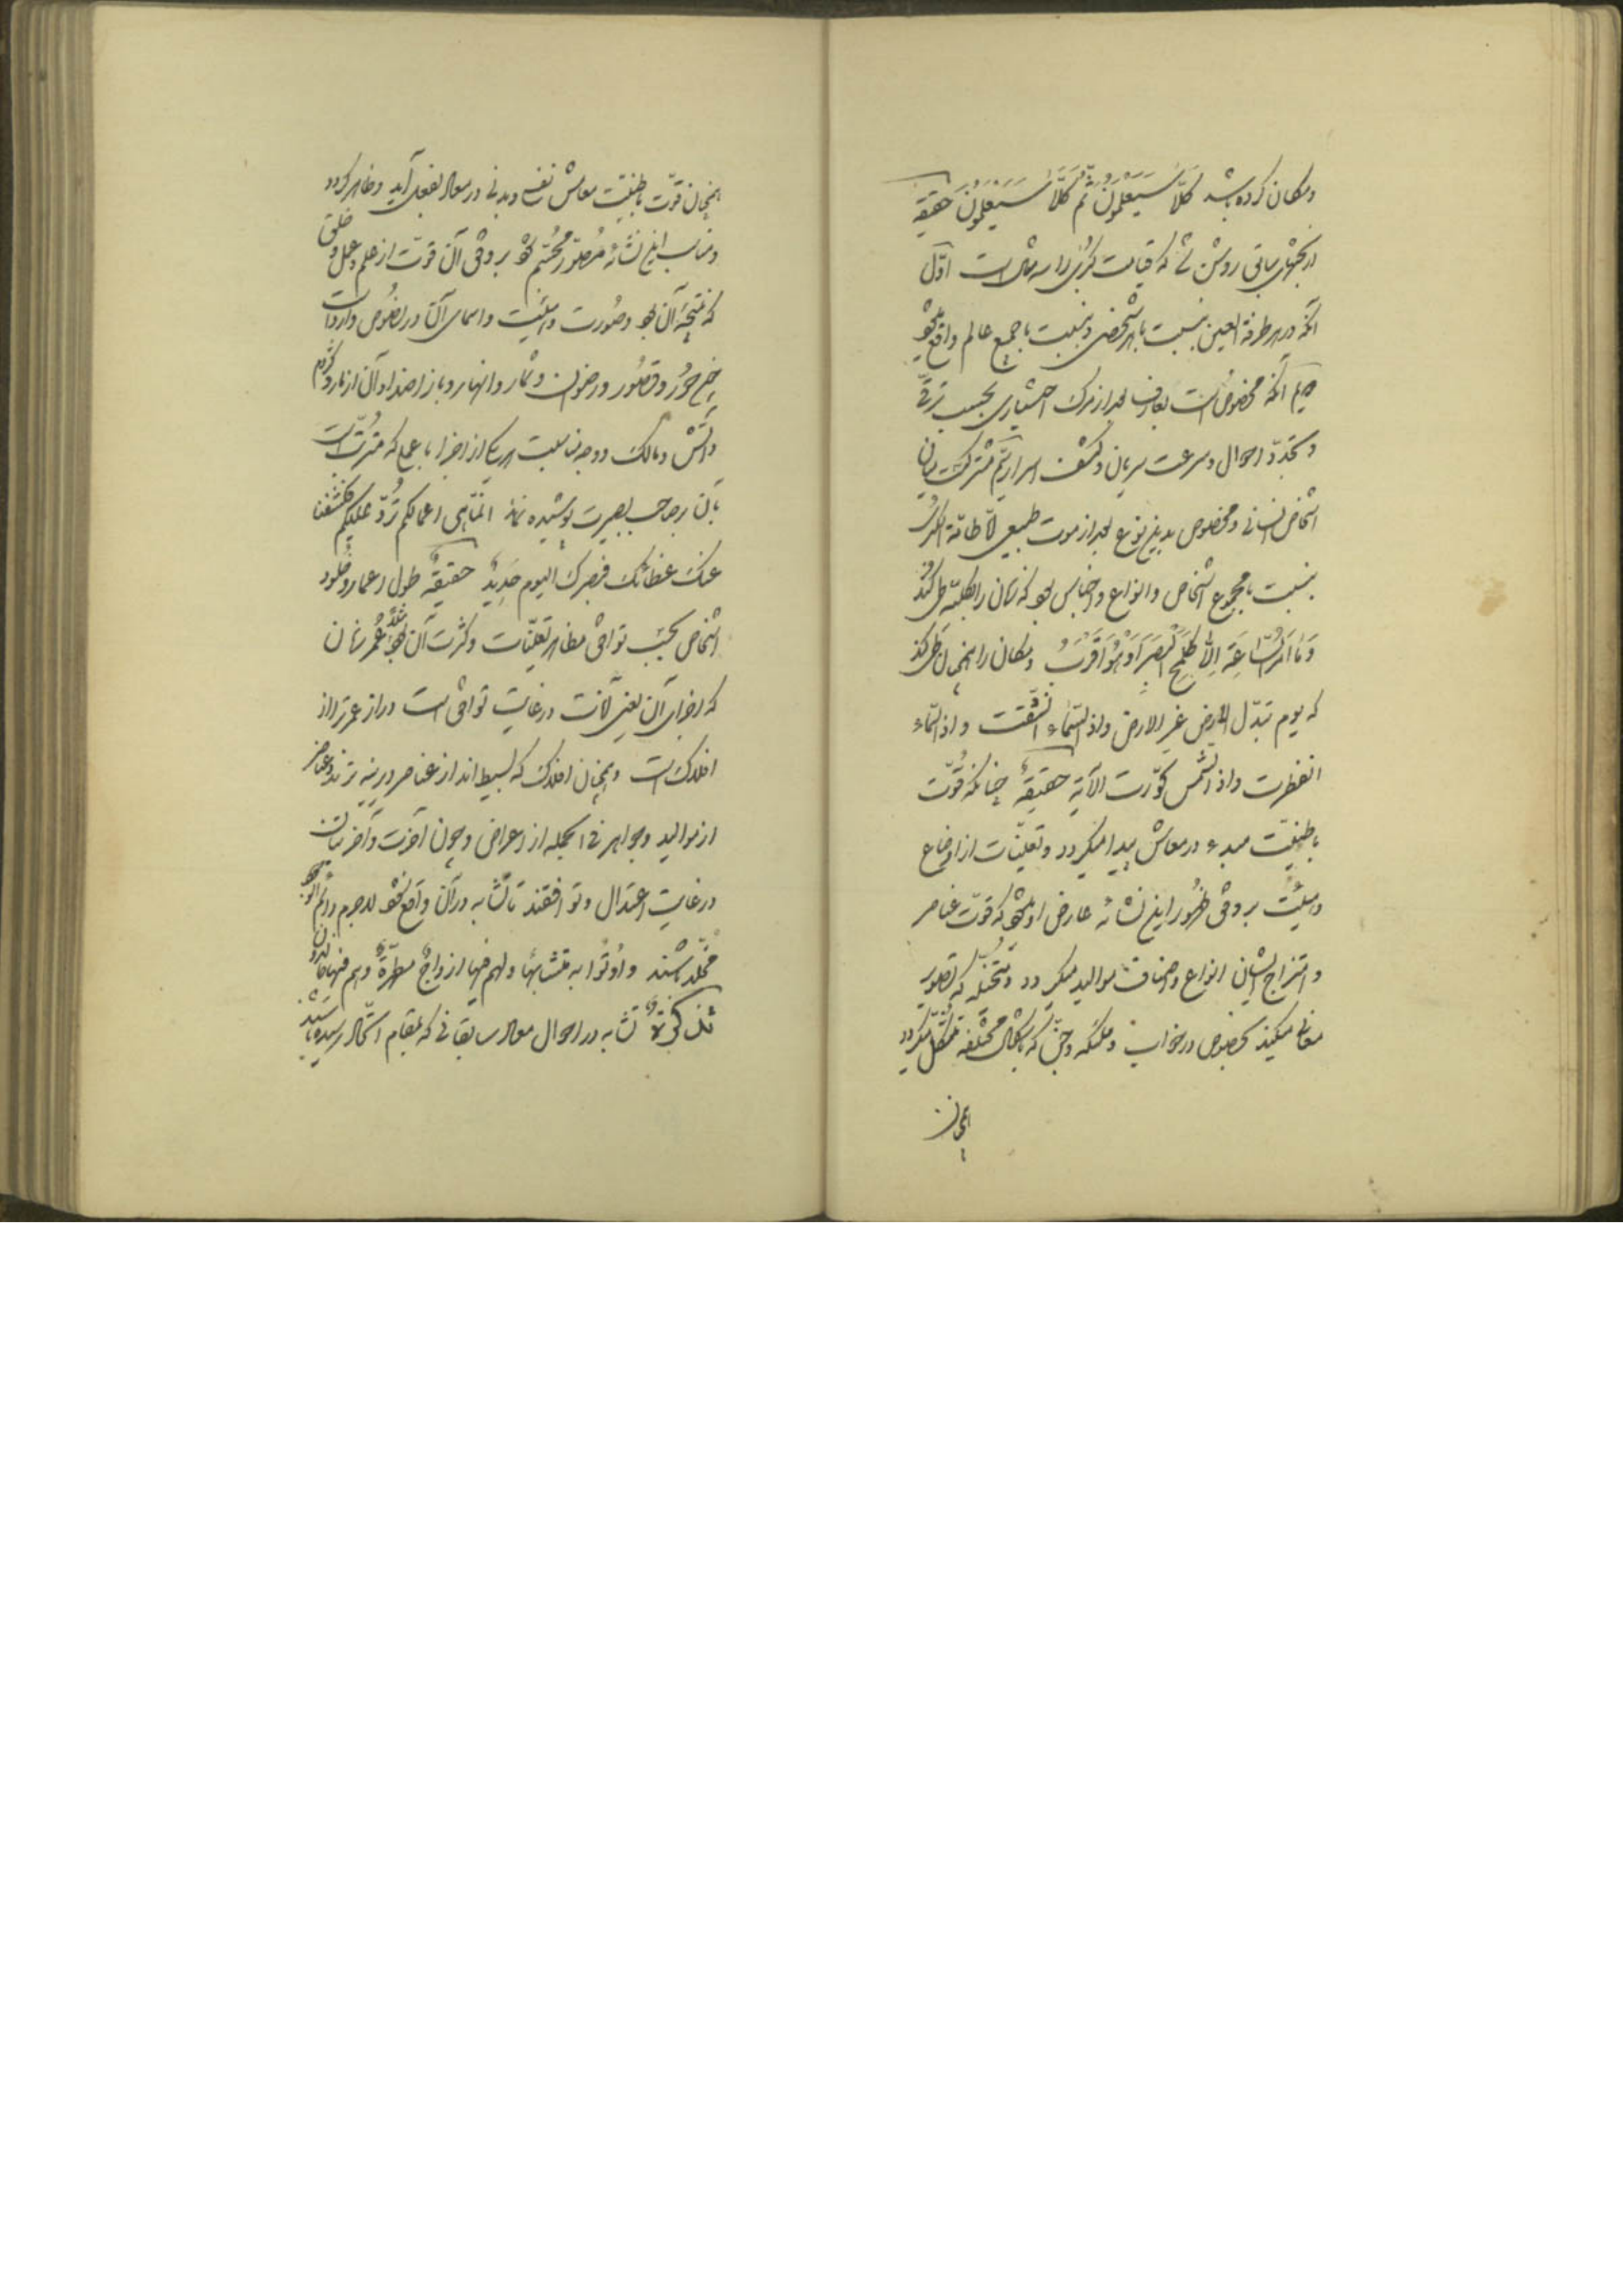 و مکان کرده باشد كَلَّا سَيَعْلَمُونَ ثُمَّ كَلَّا سَيَعْلَمُونَ حقیقة
از بحثهای سابق روشن شد که قیامت کبری را سه مثال است اوّل
آنکه در هر طرفة العین نسبت با هر شخصی و نسبت با جمیع عالم واقع میشود
دویم آنکه مخصوص است بعارف بعد از مرگ اختیاری بحسب ترقّی
و تجدّد احوال و سرعت سریان و کشف اسرار سیم مشترک است میان
اشخاص انسانی و مخصوص بدین نوع بعد از موت طبیعی لا طامّة الکبری
نسبت با مجموع اشخاص و انواع و اجناس بود که زمان را بکلیّه طی کند
وَ مَا أَمْرُ السَّاعَةِ إِلَّا كَلَمْحِ الْبَصَرِ أَوْ هُوَ أَقْرَبُ و مکان را همچنان طی کند
که یوم تبدّل الارض غیر الارض و اذا السّماء انشقّت و اذا السّماء
انفطرت و اذا الشّمس کوّرت الآیة حقیقة چنانکه قوّت
باطنیّت مبدء در معاش پیدا میگردد و تعیّنات از اوضاع
و هیئت بر وفق ظهور این نشائه عارض او میشود که قوّت عناصر
و امتزاج ایشان انواع و اصناف موالید میگردد و متخیّله که تصویر
معانی میکند بخصوص در خواب و ملئکه و جنّ که باشکال مختلفه متشکّل میگردد
همچنان
همچنان قوّت باطنیّت معاش نفسی و بدنی در معاد بفعل آید و ظاهر گردد
و مناسب این نشائه مصوّر و مجسّم شود بر وفق آن قوّت از علم و عمل و خلق
که نتیجه آن بود و صورت و هیئت و اسمای آن در نصوص وارد است
چون حور و قصور و رضوان و ثمار و انهار و باز اضداد آن از مار و کژدم
و آتش و مالک و وجه مناسبت هر یک از اجزا با عمل که مترتّب است
بآن بر صاحب بصیرت پوشیده نماند انّما هی اعمالکم تُردّ علیکم فکشفنا
عنک غطائک فبصرک الیوم حَدِیدٌ حقیقةٌ طول اعمار و خلود
اشخاص بحسب توافق مظاهر تعیّنات و کثرت آن بود عمر زمان
که اجزای آن یعنی آنات در غایت توافق است دراز عمرتر از
افلاک است و همچنان افلاک که بسیط‌اند از عناصر دیرینه ترند و عناصر
از موالید و جواهر فی الجمله از اعراض و چون آخرت و آخرتیان
در غایت اعتدال و توافقند تا تشابه در آن واقع شود لاجرم دائم الوجود
مخلّد باشند و اُوتُوا به متشابهاً و لهم فیها ازواجٌ مطهّرةٌ و هم فیها خالدون
تشابه در احوال معاد سابقانی که بمقام استکمال رسیده باشند